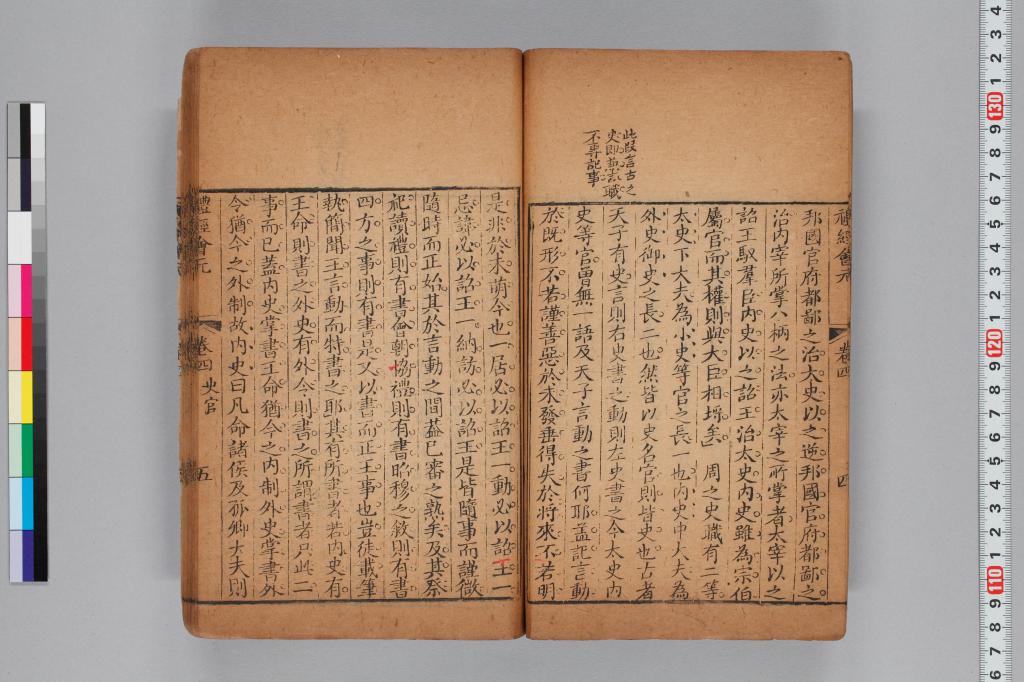 禮經會元 卷四 四
邦國官府都鄙之治太史以之逆邦國官府都鄙之
治內宰所掌八柄之法亦太宰之所掌者太宰以之
詔王馭羣臣內史以之詔王治太史內史雖為宗伯
屬官而其權則與大臣相埒矣 周之史職有二等
太史下大夫為小史等官之長一也內史中大夫為
外史御史之長二也然皆以史名官則皆史也古者
天子有史言則右史書之動則左史書之今太史內
史等官曽無一語及天子言動之書何耶盖記言動
於既形不若謹善惡於未發垂得失於將來不若明
此段言古之
史即盡史職
不專記事
是非於未萌今也一居必以詔王一動必以詔王一
忌諱必以詔王一納訪必以詔王是皆隨事而謹微
隨時而正始其於言動之間葢已審之熟矣及其祭
祀讀禮則有書會朝協禮則有書昭穆之敘則有書
四方之事則有書是又以書而正王事也豈徒載筆
執簡聞王言動而特書之耶其有所書者若內史有
王命則書之外史有外令則書之所謂書者只此二
事而已葢內史掌書王命猶今之內制外史掌書外
令猶今之外制故內史曰凡命諸侯及孤卿大夫則
禮經會元 卷四 史官 五